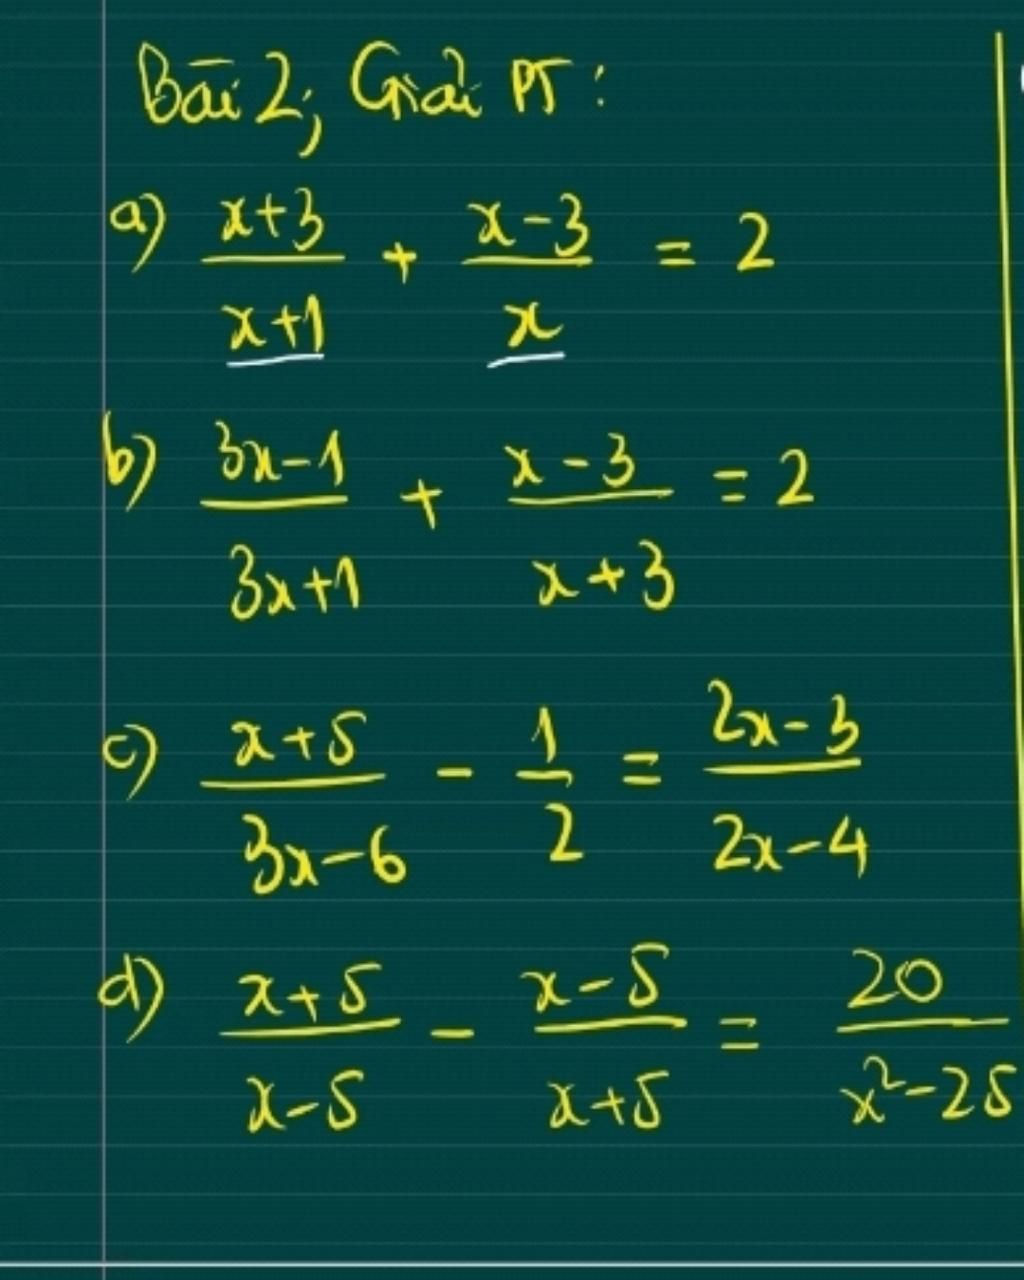 Bài 2; Giải PT:
a) \frac{x+3}{x+1} + \frac{x-3}{x} = 2
b) \frac{3x-1}{3x+1} + \frac{x-3}{x+3} = 2
c) \frac{x+5}{3x-6} - \frac{1}{2} = \frac{2x-3}{2x-4}
d) \frac{x+5}{x-5} - \frac{x-5}{x+5} = \frac{20}{x^2-25}